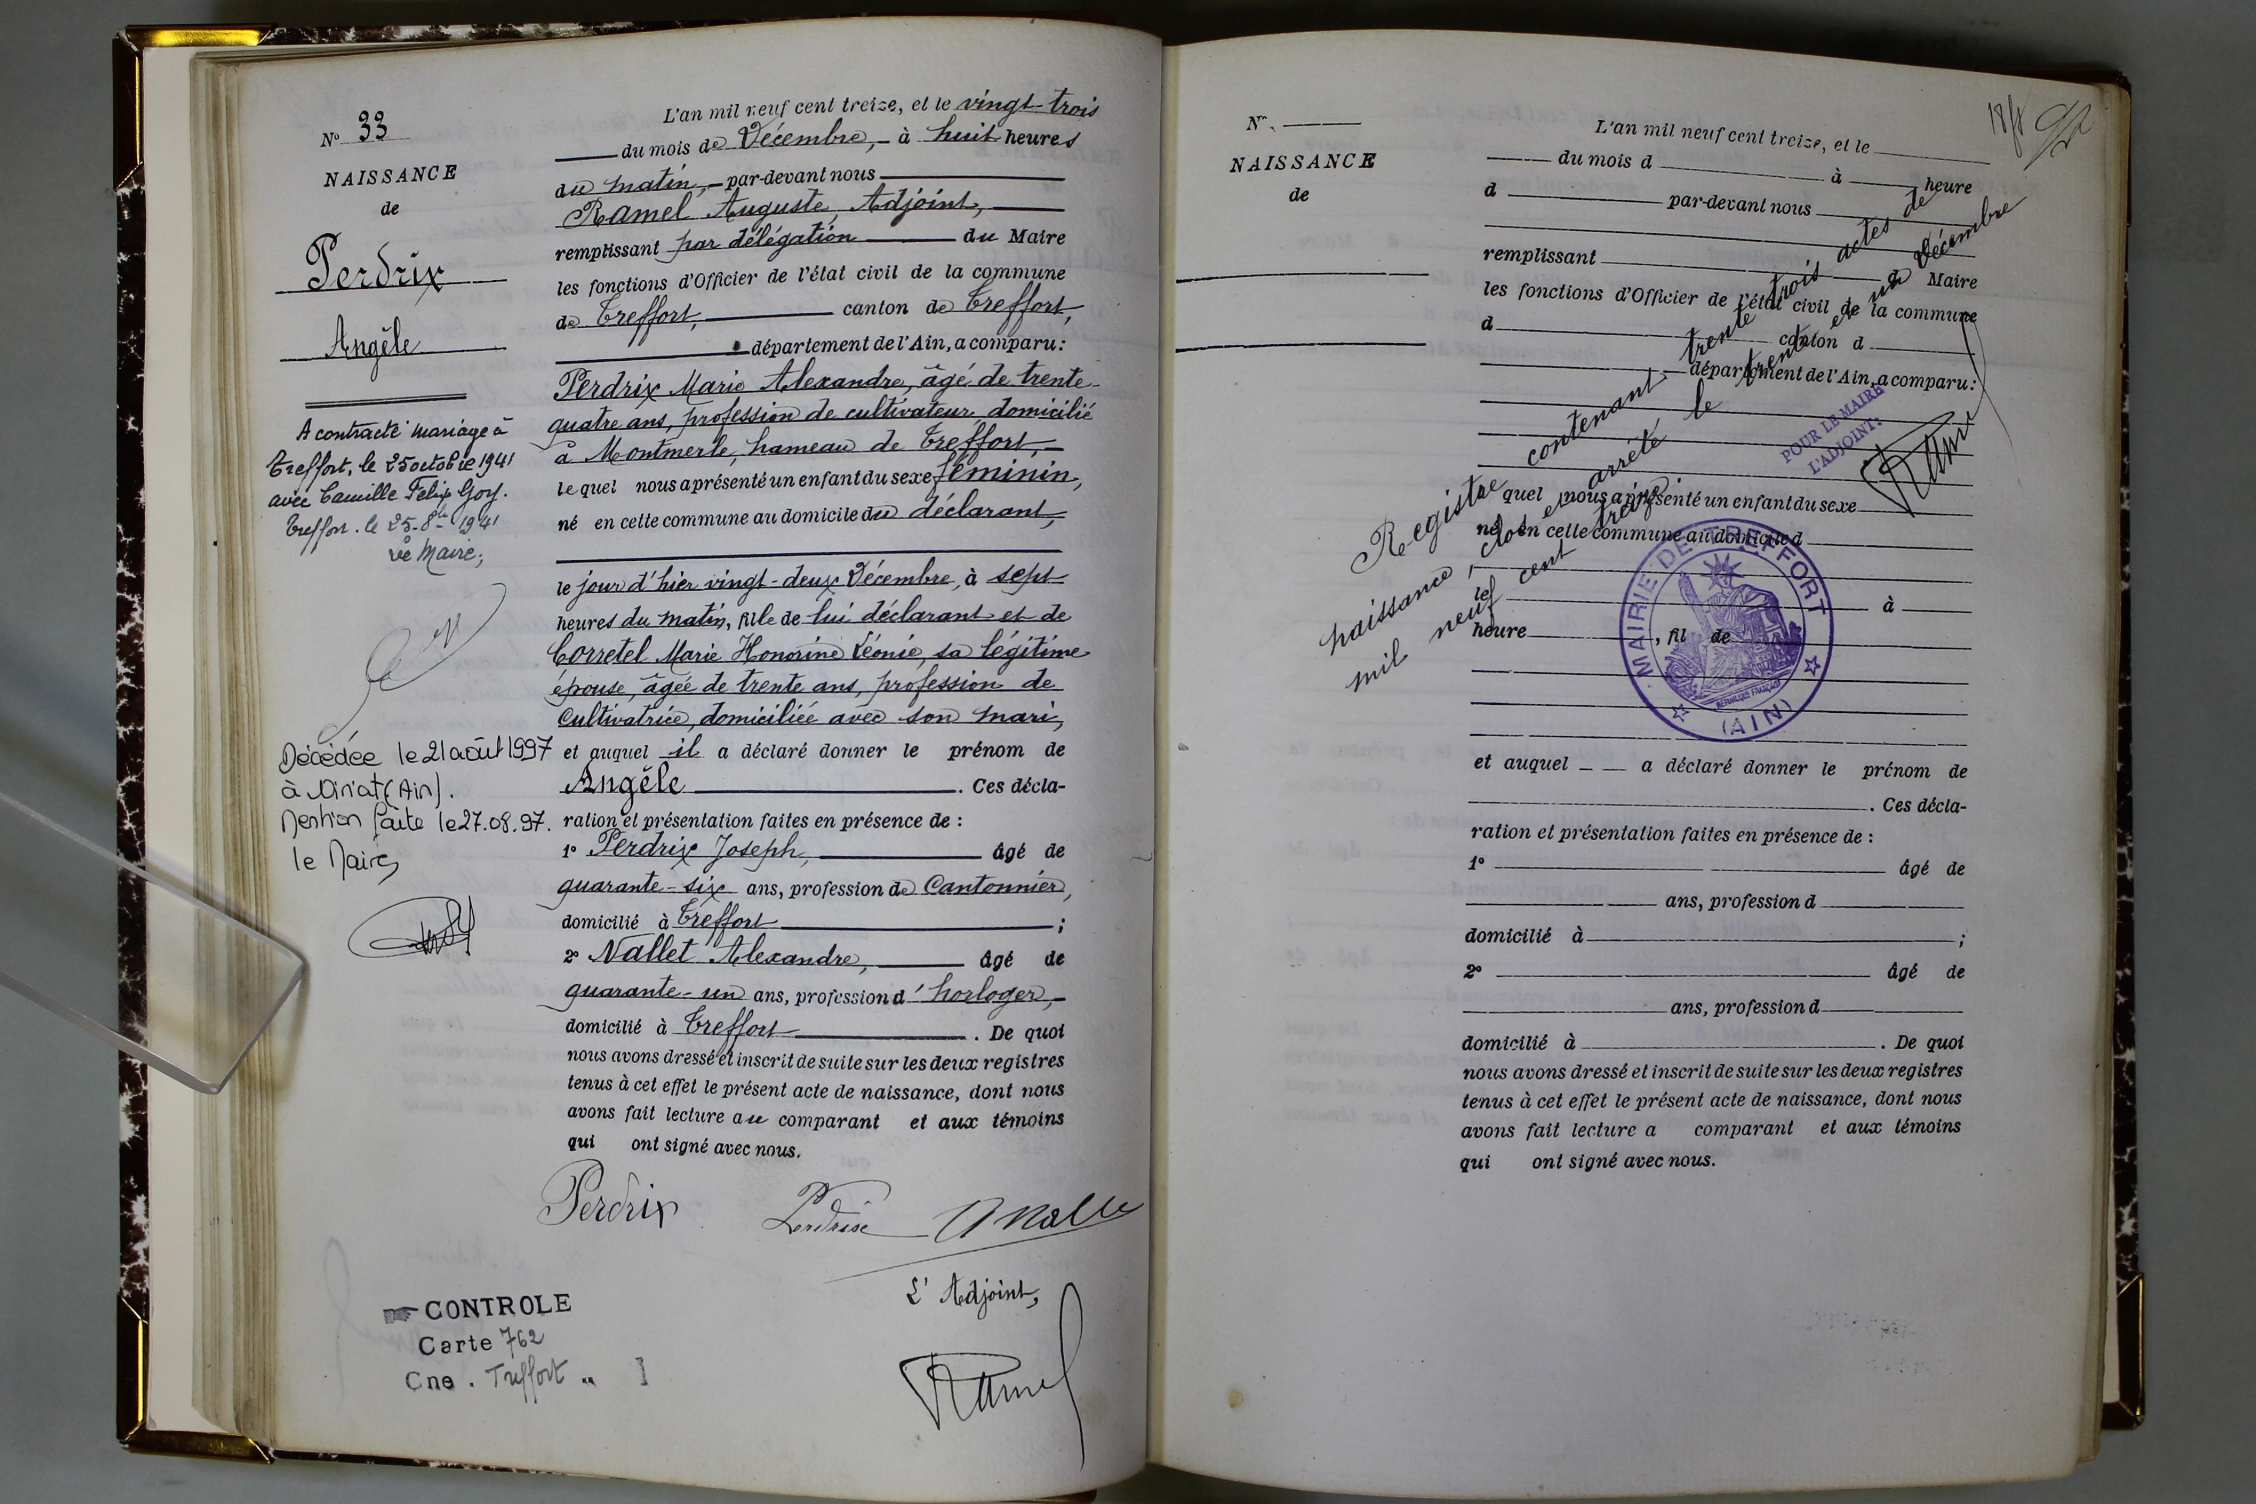 N° 33
NAISSANCE
de
Perdrix
Angèle
A contracté mariage à
Treffort, le 25 octobre 1941
avec Camille Felix Goy.
Treffort. le 25-8bre 1941
Le Maire,
Décédée le 21 août 1997
à Viriat (Ain).
Mention faite le 27.08.97.
le Maire,
L'an mil neuf cent treize, et le vingt-trois
du mois de Décembre, à huit heures
du matin, par-devant nous
Ramel Auguste, Adjoint,
remplissant par délégation du Maire
les fonctions d'Officier de l'état civil de la commune
de Treffort, canton de Treffort,
département de l'Ain, a comparu:
Perdrix Marie Alexandre, âgé de trente-
quatre ans, profession de cultivateur domicilié
à Montmerle, hameau de Treffort,
lequel nous a présenté un enfant du sexe féminin,
né en cette commune au domicile du déclarant,
le jour d'hier vingt-deux Décembre, à sept
heures du matin, fille de lui déclarant et de
Corretel Marie Honorine Léonie, sa légitime
épouse, âgée de trente ans, profession de
Cultivatrice, domiciliée avec son mari,
et auquel il a déclaré donner le prénom de
Angèle. Ces décla-
ration et présentation faites en présence de :
1° Perdrix Joseph, âgé de
quarante-six ans, profession de Cantonnier,
domicilié à Treffort ;
2° Nallet Alexandre, âgé de
quarante-un ans, profession d'horloger,
domicilié à Treffort. De quoi
nous avons dressé et inscrit de suite sur les deux registres
tenus à cet effet le présent acte de naissance, dont nous
avons fait lecture au comparant et aux témoins
qui ont signé avec nous.
Perdrix Perdrix
L'Adjoint,
Ramel
CONTROLE
Carte 762
Cne. Treffort
N°.
NAISSANCE
de
L'an mil neuf cent treize, et le
du mois d à heure
d par-devant nous
remplissant d Maire
les fonctions d'Officier de l'état civil de la commune
d canton d
département de l'Ain, a comparu:
quel nous a présenté un enfant du sexe
né en cette commune au domicile d
le à
heure , fil de
et auquel a déclaré donner le prénom de
. Ces décla-
ration et présentation faites en présence de :
1° âgé de
ans, profession d
domicilié à ;
2° âgé de
ans, profession d
domicilié à . De quoi
nous avons dressé et inscrit de suite sur les deux registres
tenus à cet effet le présent acte de naissance, dont nous
avons fait lecture a comparant et aux témoins
qui ont signé avec nous.
Registre contenant trente trois actes de
naissance, clos et arrêté le trente et un Décembre
mil neuf cent treize.
POUR LE MAIRE
L'ADJOINT:
Ramel
MAIRIE DE TREFFORT
RÉPUBLIQUE FRANÇAISE
(AIN)